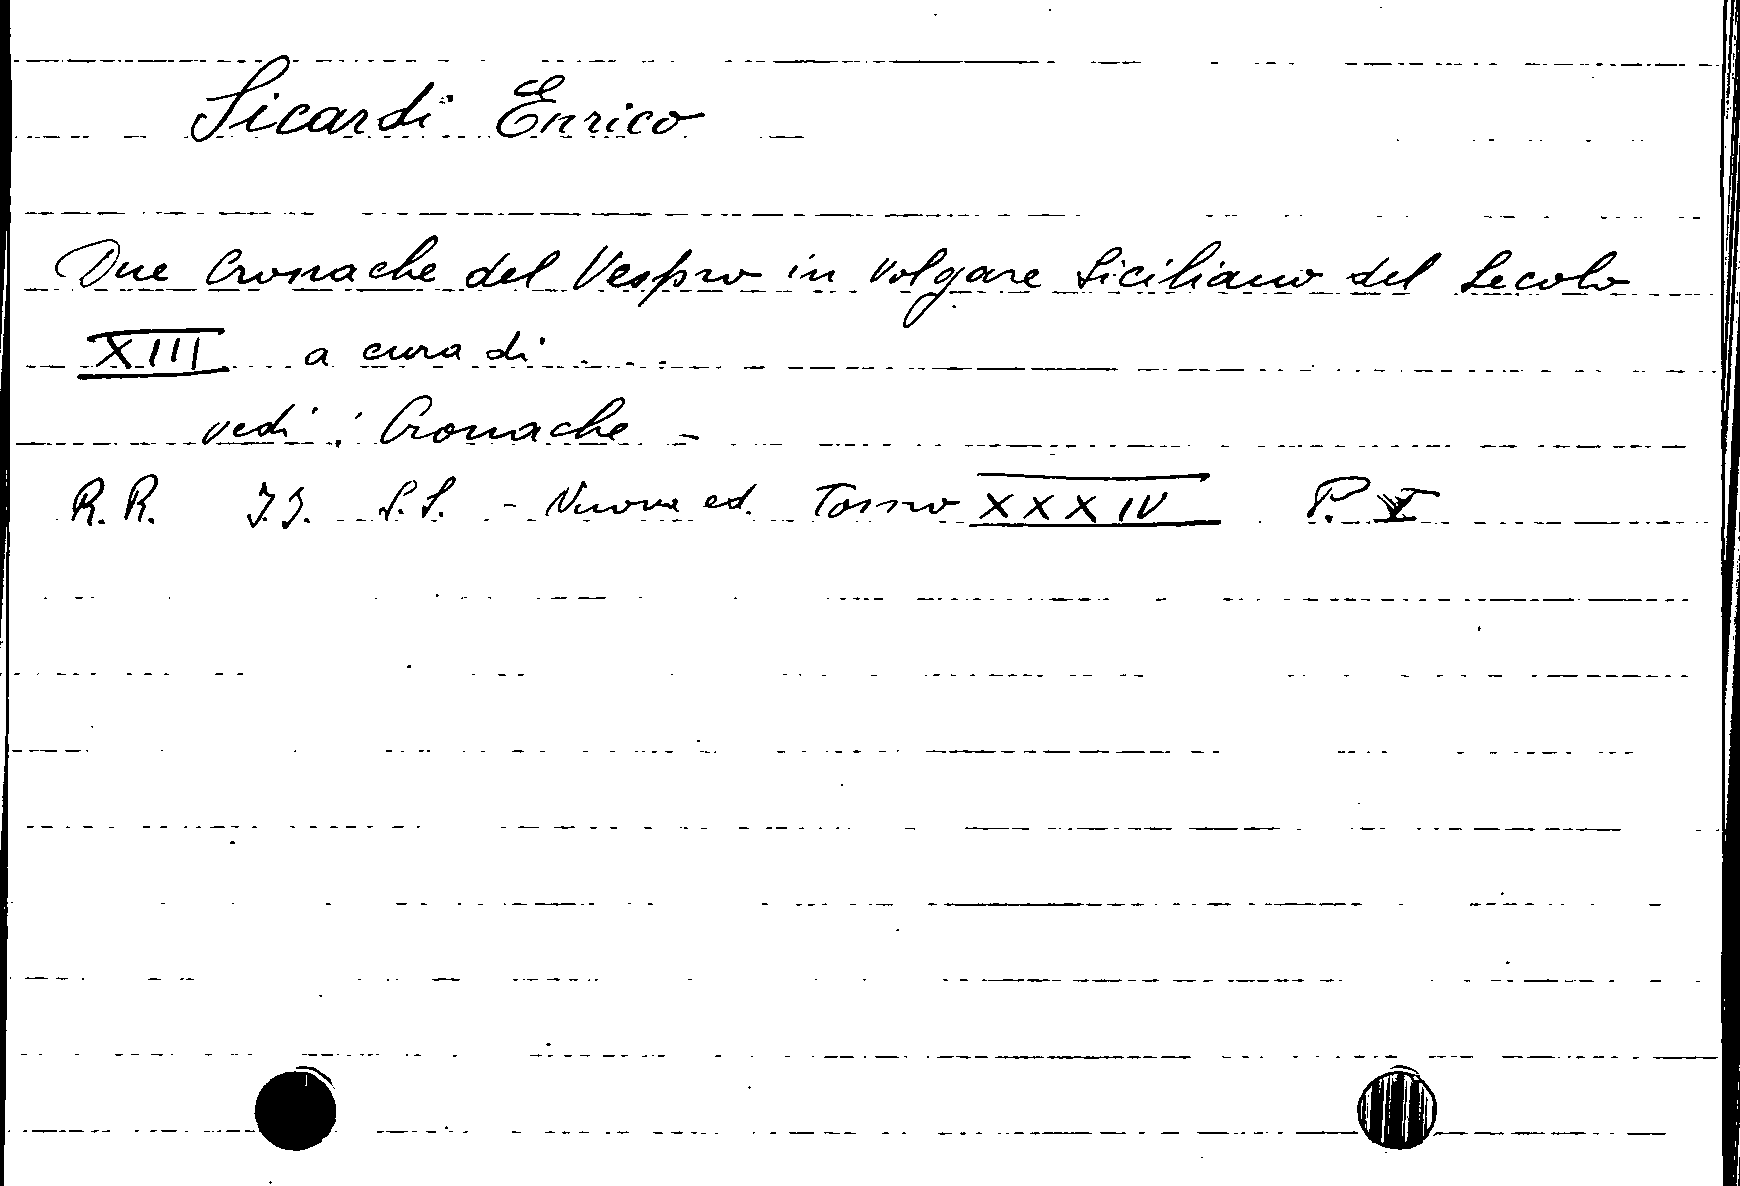 Sicardi Enrico
Due Cronache del Vespro in volgare Siciliano del Secolo
XIII a cura di . . . .
vedi : Cronache -
R.R. I.I. S.S. - Nuova ed. Tomo XXXIV P.